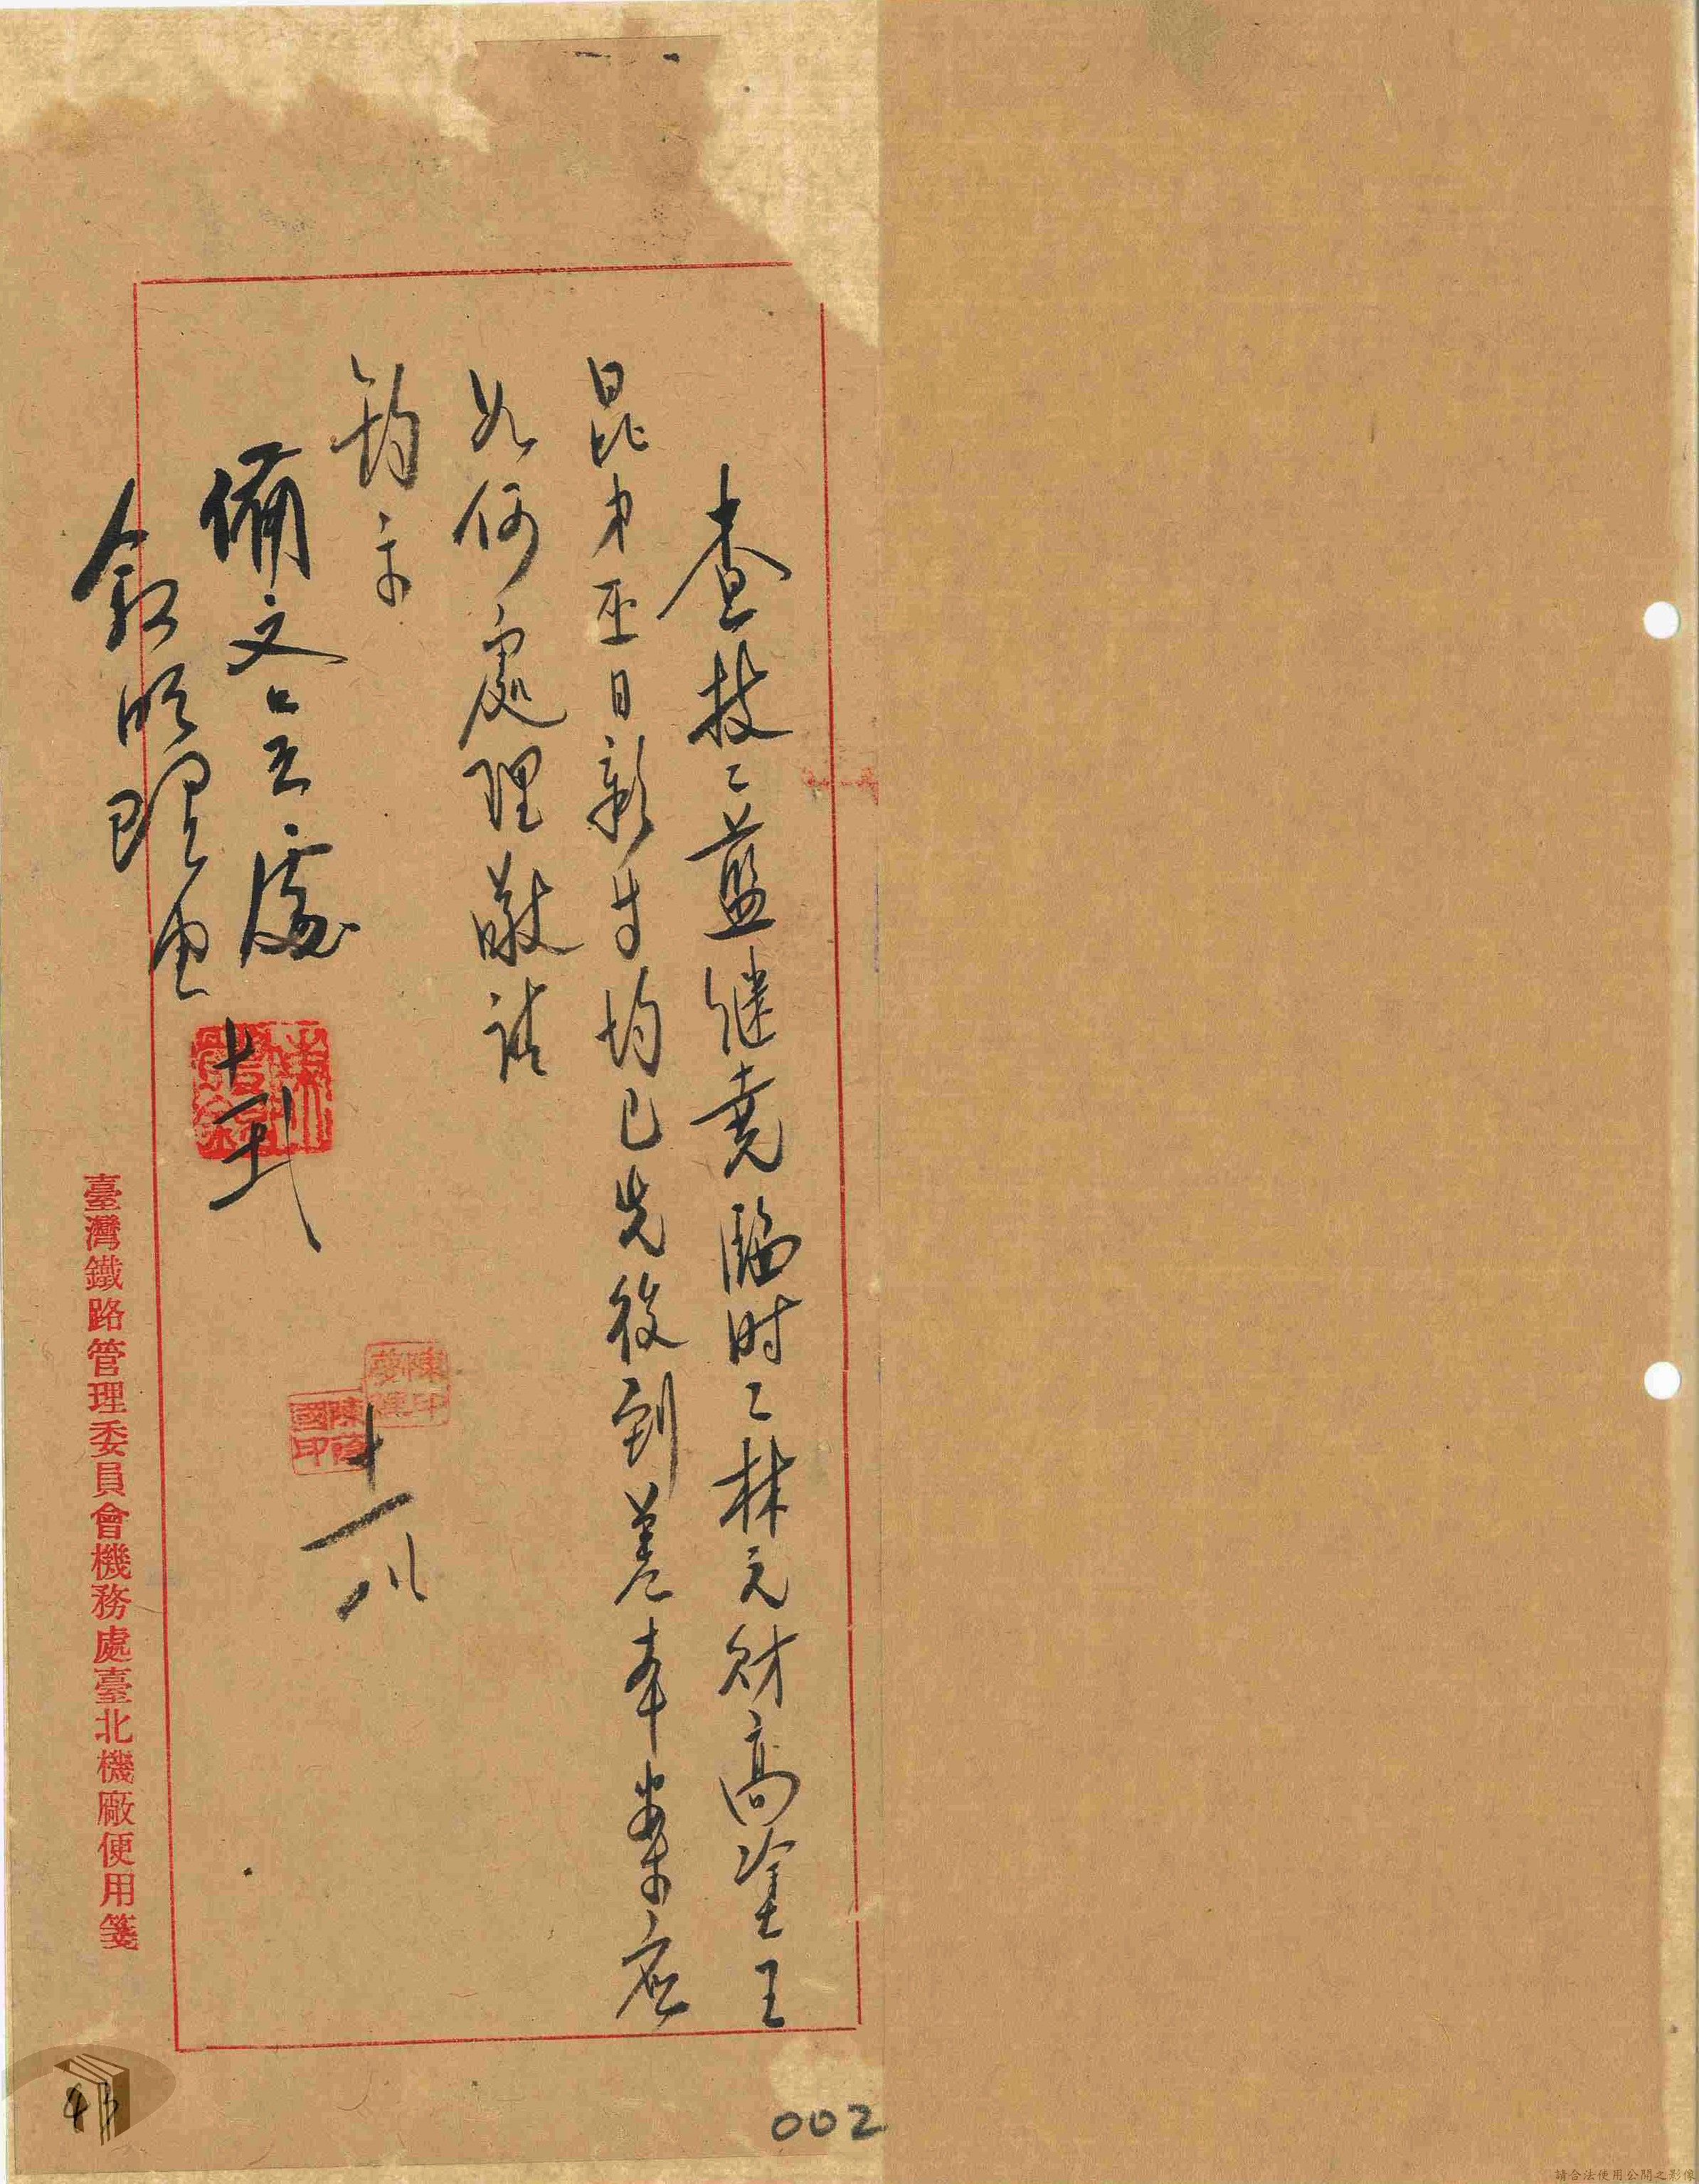 查技工藍继堯臨时工林元财高塗王
昆中巫日彰等均已先後到差奉案应
如何處理敬请
鈞示
備文呈處
叙明理由
十一八
臺灣鐵路管理委員會機務處臺北機廠便用箋
002
請合法使用公開之影像